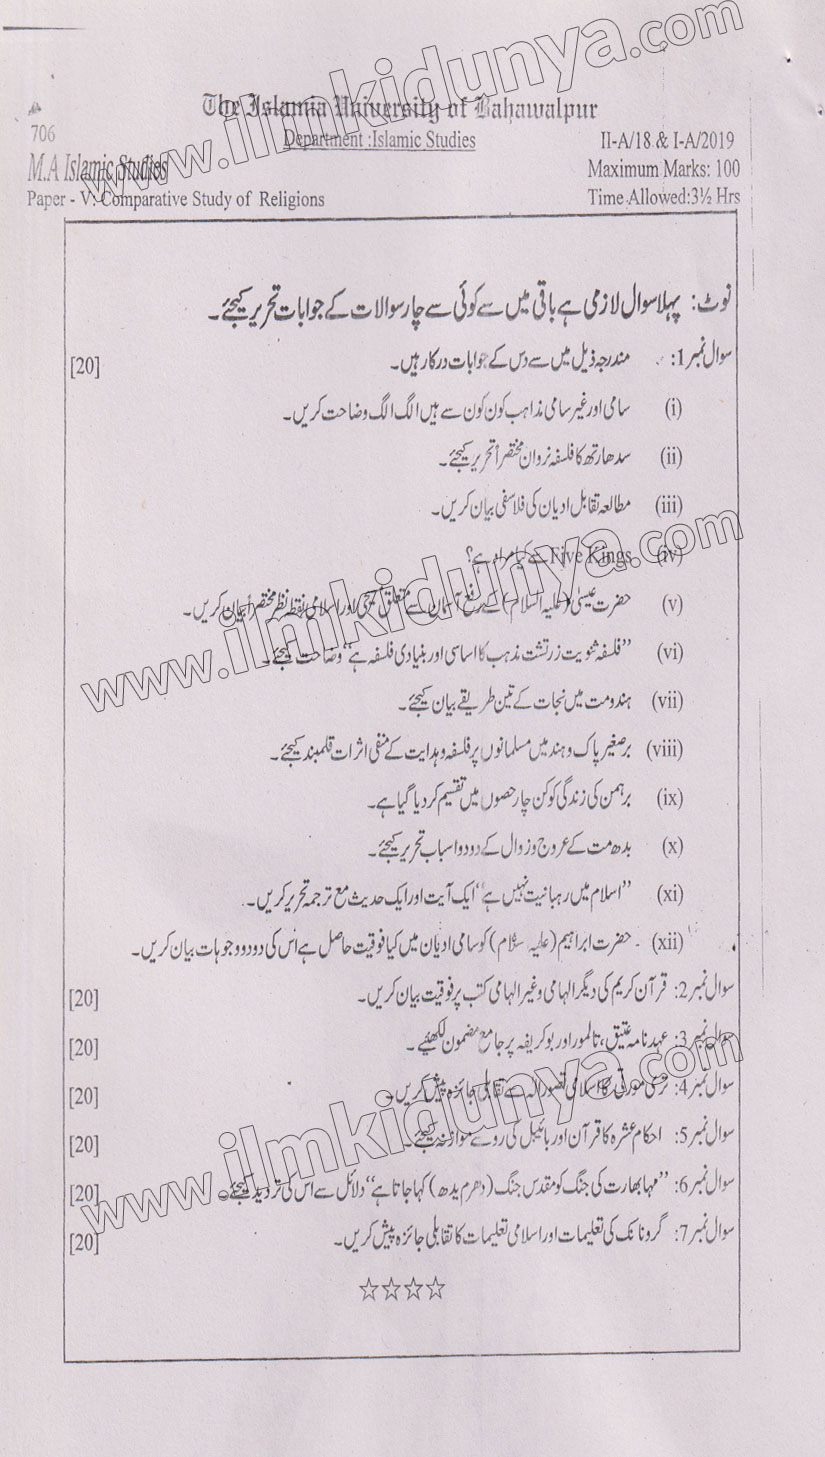 The Islamia University of Bahawalpur
706
Department :Islamic Studies
II-A/18 & I-A/2019
M.A Islamic Studies
Maximum Marks: 100
Paper - V: Comparative Study of Religions
Time Allowed:3½ Hrs
نوٹ: پہلا سوال لازمی ہے باقی میں سے کوئی سے چار سوالات کے جوابات تحریر کیجئے۔
سوال نمبر1: مندرجہ ذیل میں سے دس کے جوابات درکار ہیں۔ [20]
(i) سامی اور غیر سامی مذاہب کون کون سے ہیں الگ الگ وضاحت کریں۔
(ii) سدھارتھ کا فلسفہ نروان مختصراً تحریر کیجئے۔
(iii) مطالعہ تقابل ادیان کی فلاسفی بیان کریں۔
(iv) Five Kings سے کیا مراد ہے؟
(v) حضرت عیسیٰ (علیہ السلام) کے رفع آسمان سے متعلق مسیحی اور اسلامی نقطہ نظر مختصراً بیان کریں۔
(vi) ”فلسفہ ثنویت زرتشت مذہب کا اساسی اور بنیادی فلسفہ ہے“ وضاحت کیجئے۔
(vii) ہندومت میں نجات کے تین طریقے بیان کیجئے۔
(viii) برصغیر پاک و ہند میں مسلمانوں پر فلسفہ و ہدایت کے منفی اثرات قلمبند کیجئے۔
(ix) برہمن کی زندگی کو کن چار حصوں میں تقسیم کر دیا گیا ہے۔
(x) بدھ مت کے عروج و زوال کے دو دو اسباب تحریر کیجئے۔
(xi) ”اسلام میں رہبانیت نہیں ہے“ ایک آیت اور ایک حدیث مع ترجمہ تحریر کریں۔
(xii) حضرت ابراہیم (علیہ سلام) کو سامی ادیان میں کیا فوقیت حاصل ہے اس کی دو دو وجوہات بیان کریں۔
سوال نمبر2: قرآن کریم کی دیگر الہامی و غیر الہامی کتب پر فوقیت بیان کریں۔ [20]
سوال نمبر3: عہد نامہ عتیق، تالمور اور بو کریفہ پر جامع مضمون لکھئیے۔ [20]
سوال نمبر4: تری مورتی کا اسلامی تصور الہ سے تقابلی جائزہ پیش کریں۔ [20]
سوال نمبر5: احکام عشرہ کا قرآن اور بائیبل کی روسے موازنہ کیجئے۔ [20]
سوال نمبر6: ”مہا بھارت کی جنگ کو مقدس جنگ (دھرم یدھ) کہا جاتا ہے“ دلائل سے اس کی تردید کیجئے۔ [20]
سوال نمبر7: گرونانک کی تعلیمات اور اسلامی تعلیمات کا تقابلی جائزہ پیش کریں۔ [20]
☆☆☆☆
www.ilmkidunya.com
www.ilmkidunya.com
www.ilmkidunya.com